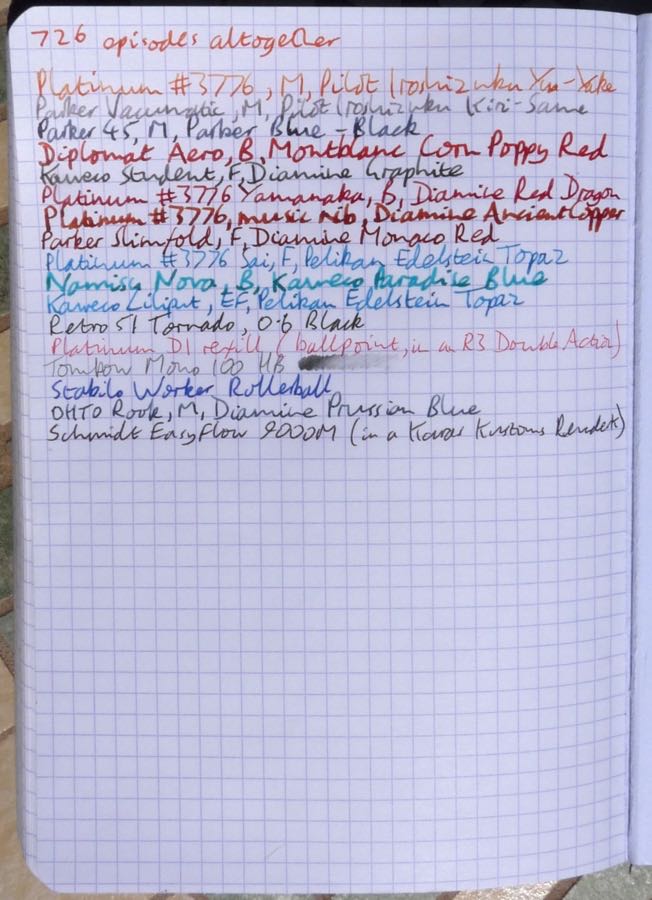 726 episodes altogether
Platinum #3776, M, Pilot Iroshizuku Yu-Yake
Parker Vacumatic, M, Pilot Iroshizuku Kiri-Same
Parker 45, M, Parker Blue-Black
Diplomat Aero, B, Montblanc Corn Poppy Red
Kaweco Student, F, Diamine Graphite
Platinum #3776 Yamanaka, B, Diamine Red Dragon
Platinum #3776, music nib, Diamine Ancient Copper
Parker Slimfold, F, Diamine Monaco Red
Platinum #3776 Sai, F, Pelikan Edelstein Topaz
Namisu Nova, B, Kaweco Paradise Blue
Kaweco Liliput, EF, Pelikan Edelstein Topaz
Retro 51 Tornado, 0.6 Black
Platinum D1 refill (ballpoint, in an R3 Double Action)
Tombow Mono 100 HB
Stabilo Worker Rollerball
OHTO Rook, M, Diamine Prussian Blue
Schmidt EasyFlow 9000M (in a Karas Kustoms)